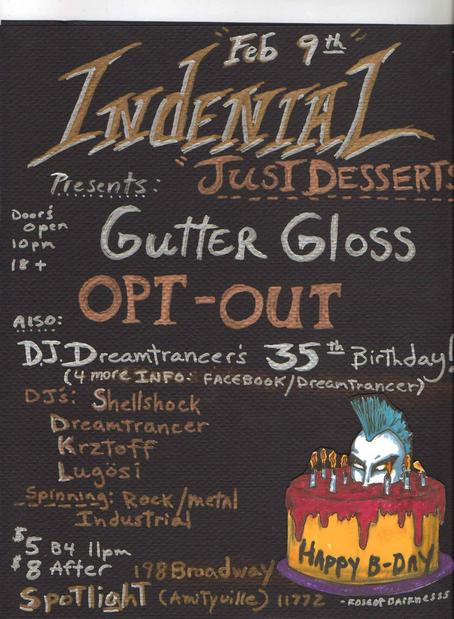 "Feb 9th"
INDENIAL
Presents:
"JUST DESSERTS
Doors
open
10pm
18+
Gutter Gloss
OPT-OUT
ALSO:
D.J. Dreamtrancer's 35th Birthday!
(4 more INFO: FACEBOOK/Dreamtrancer)
DJ's: Shellshock
Dreamtrancer
Krztoff
Lugösi
Spinning: Rock/metal
Industrial
$5 B4 11pm
$8 After
198 Broadway
Spotlight (Amityville) 11772
HAPPY B-DAY
-ROSEOFDARKNESSS